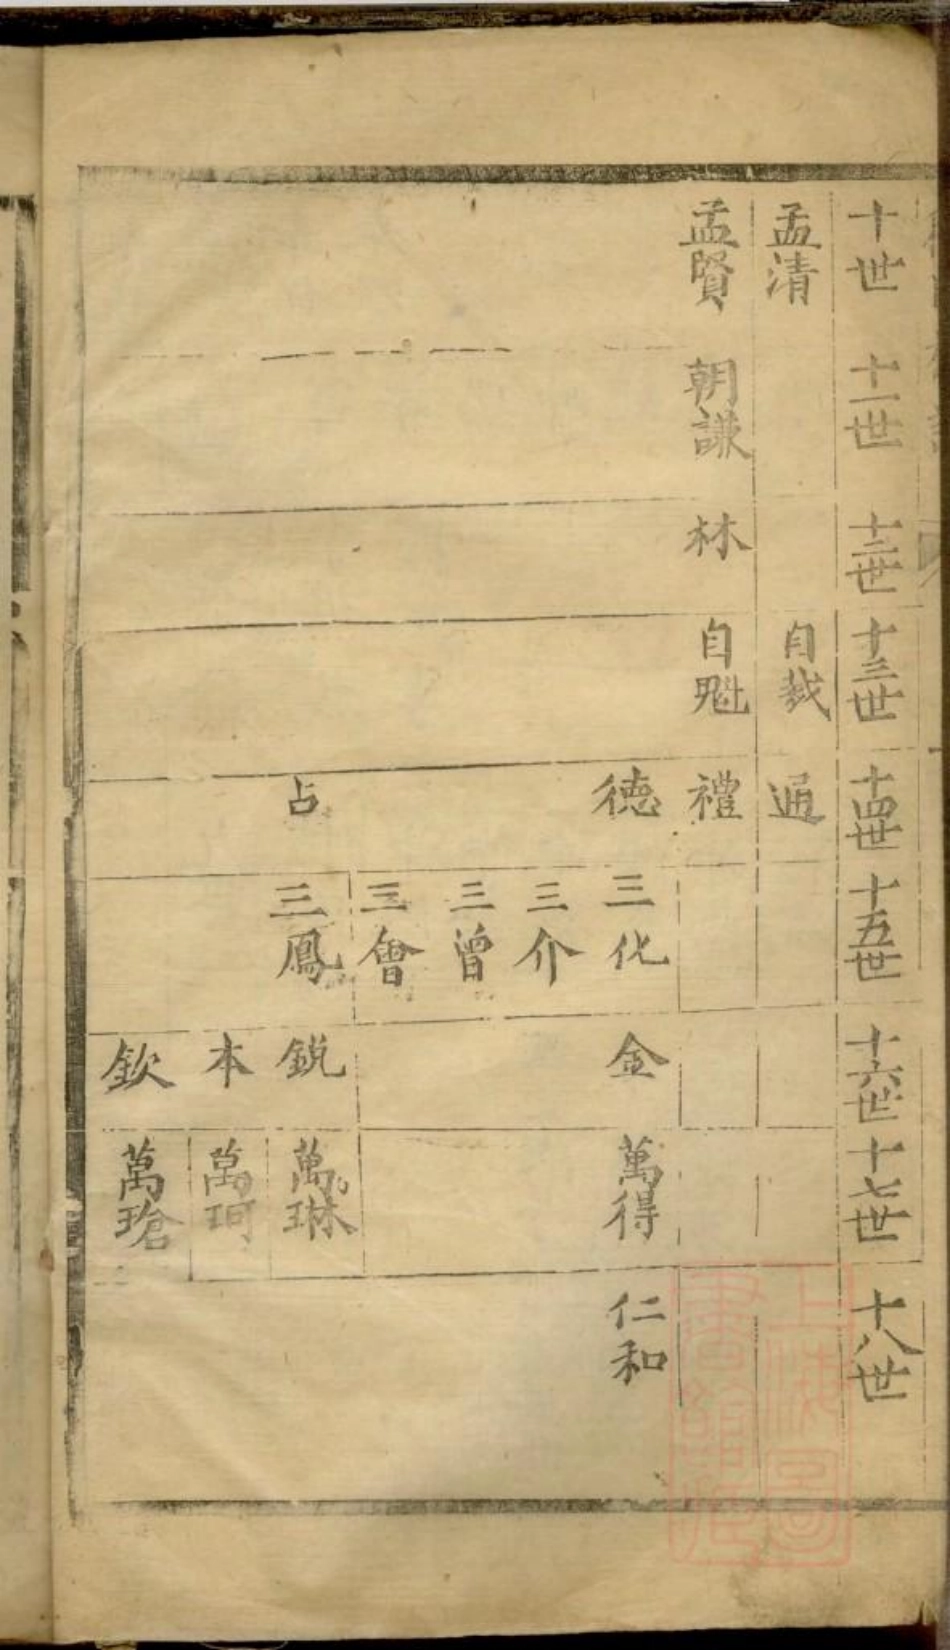 十世
十一世
十二世
十三世
十四世
十五世
十六世
十七世
十八世
孟清
自裁
通
孟賢
朝謙
林
自魁
禮
德
三化
金
萬得
仁和
三介
三曾
三會
占
三鳳
銳
萬琳
本
萬珂
欽
萬瑲
上海圖
書館藏